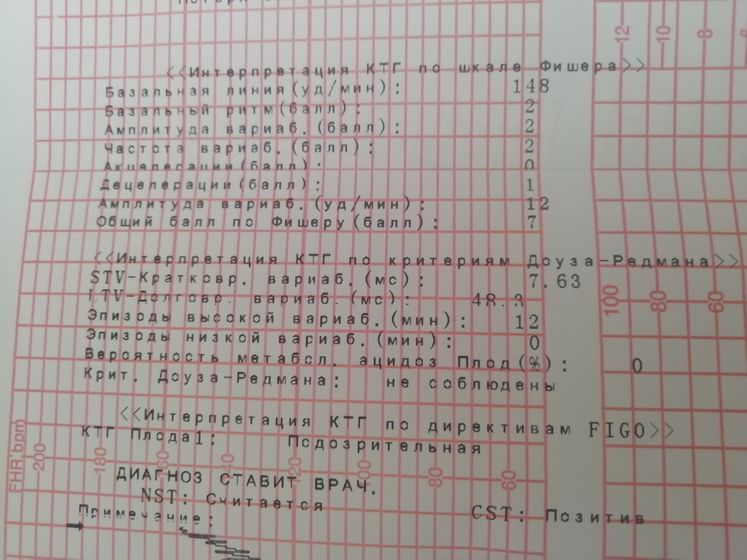 <<Интерпретация КТГ по шкале Фишера>>
Базальная линия(уд/мин): 148
Базальный ритм(балл): 2
Амплитуда вариаб.(балл): 2
Частота вариаб.(балл): 2
Акцелерации(балл): 0
Децелерации(балл): 1
Амплитуда вариаб.(уд/мин): 12
Общий балл по Фишеру(балл): 7
<<Интерпретация КТГ по критериям Доуза-Редмана>>
STV-Кратковр. вариаб.(мс): 7.63
LTV-Долговр. вариаб.(мс): 48.3
Эпизоды высокой вариаб.(мин): 12
Эпизоды низкой вариаб.(мин): 0
Вероятность метабол. ацидоз Плод(%): 0
Крит. Доуза-Редмана: не соблюдены
<<Интерпретация КТГ по директивам FIGO>>
КТГ Плода1: Подозрительная
ДИАГНОЗ СТАВИТ ВРАЧ.
NST: Считается CST: Позитив
Примечание:
FHR bpm
200 180 140 120 100 80 60
100 80 60
12 10 8 6